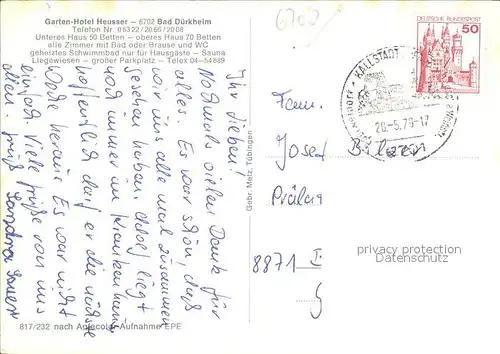 Garten-Hotel Heusser – 6702 Bad Dürkheim
Telefon Nr. 06322/2066/2008
Unteres Haus 50 Betten – oberes Haus 70 Betten
alle Zimmer mit Bad oder Brause und WC
geheiztes Schwimmbad nur für Hausgäste – Sauna
Liegewiesen – großer Parkplatz – Telex 04-54889
Ihr Lieben!
Nochmals vielen Dank für
alles. Es war schön, daß
wir uns alle mal zusammen
gesehen haben. Adolf liegt
noch immer im Krankenhaus
hoffentlich darf er die nächste
Woche heraus. Es war nicht
einfach. Viele Grüße von uns
allen.
817/232 nach Agfacolor-Aufnahme EPE
Gebr. Metz, Tübingen
6702
DEUTSCHE BUNDESPOST
50
KALLSTADT
28.-5.79-17
Fam.
Josef
Prälat
8871 I
9
privacy protection
Datenschutz